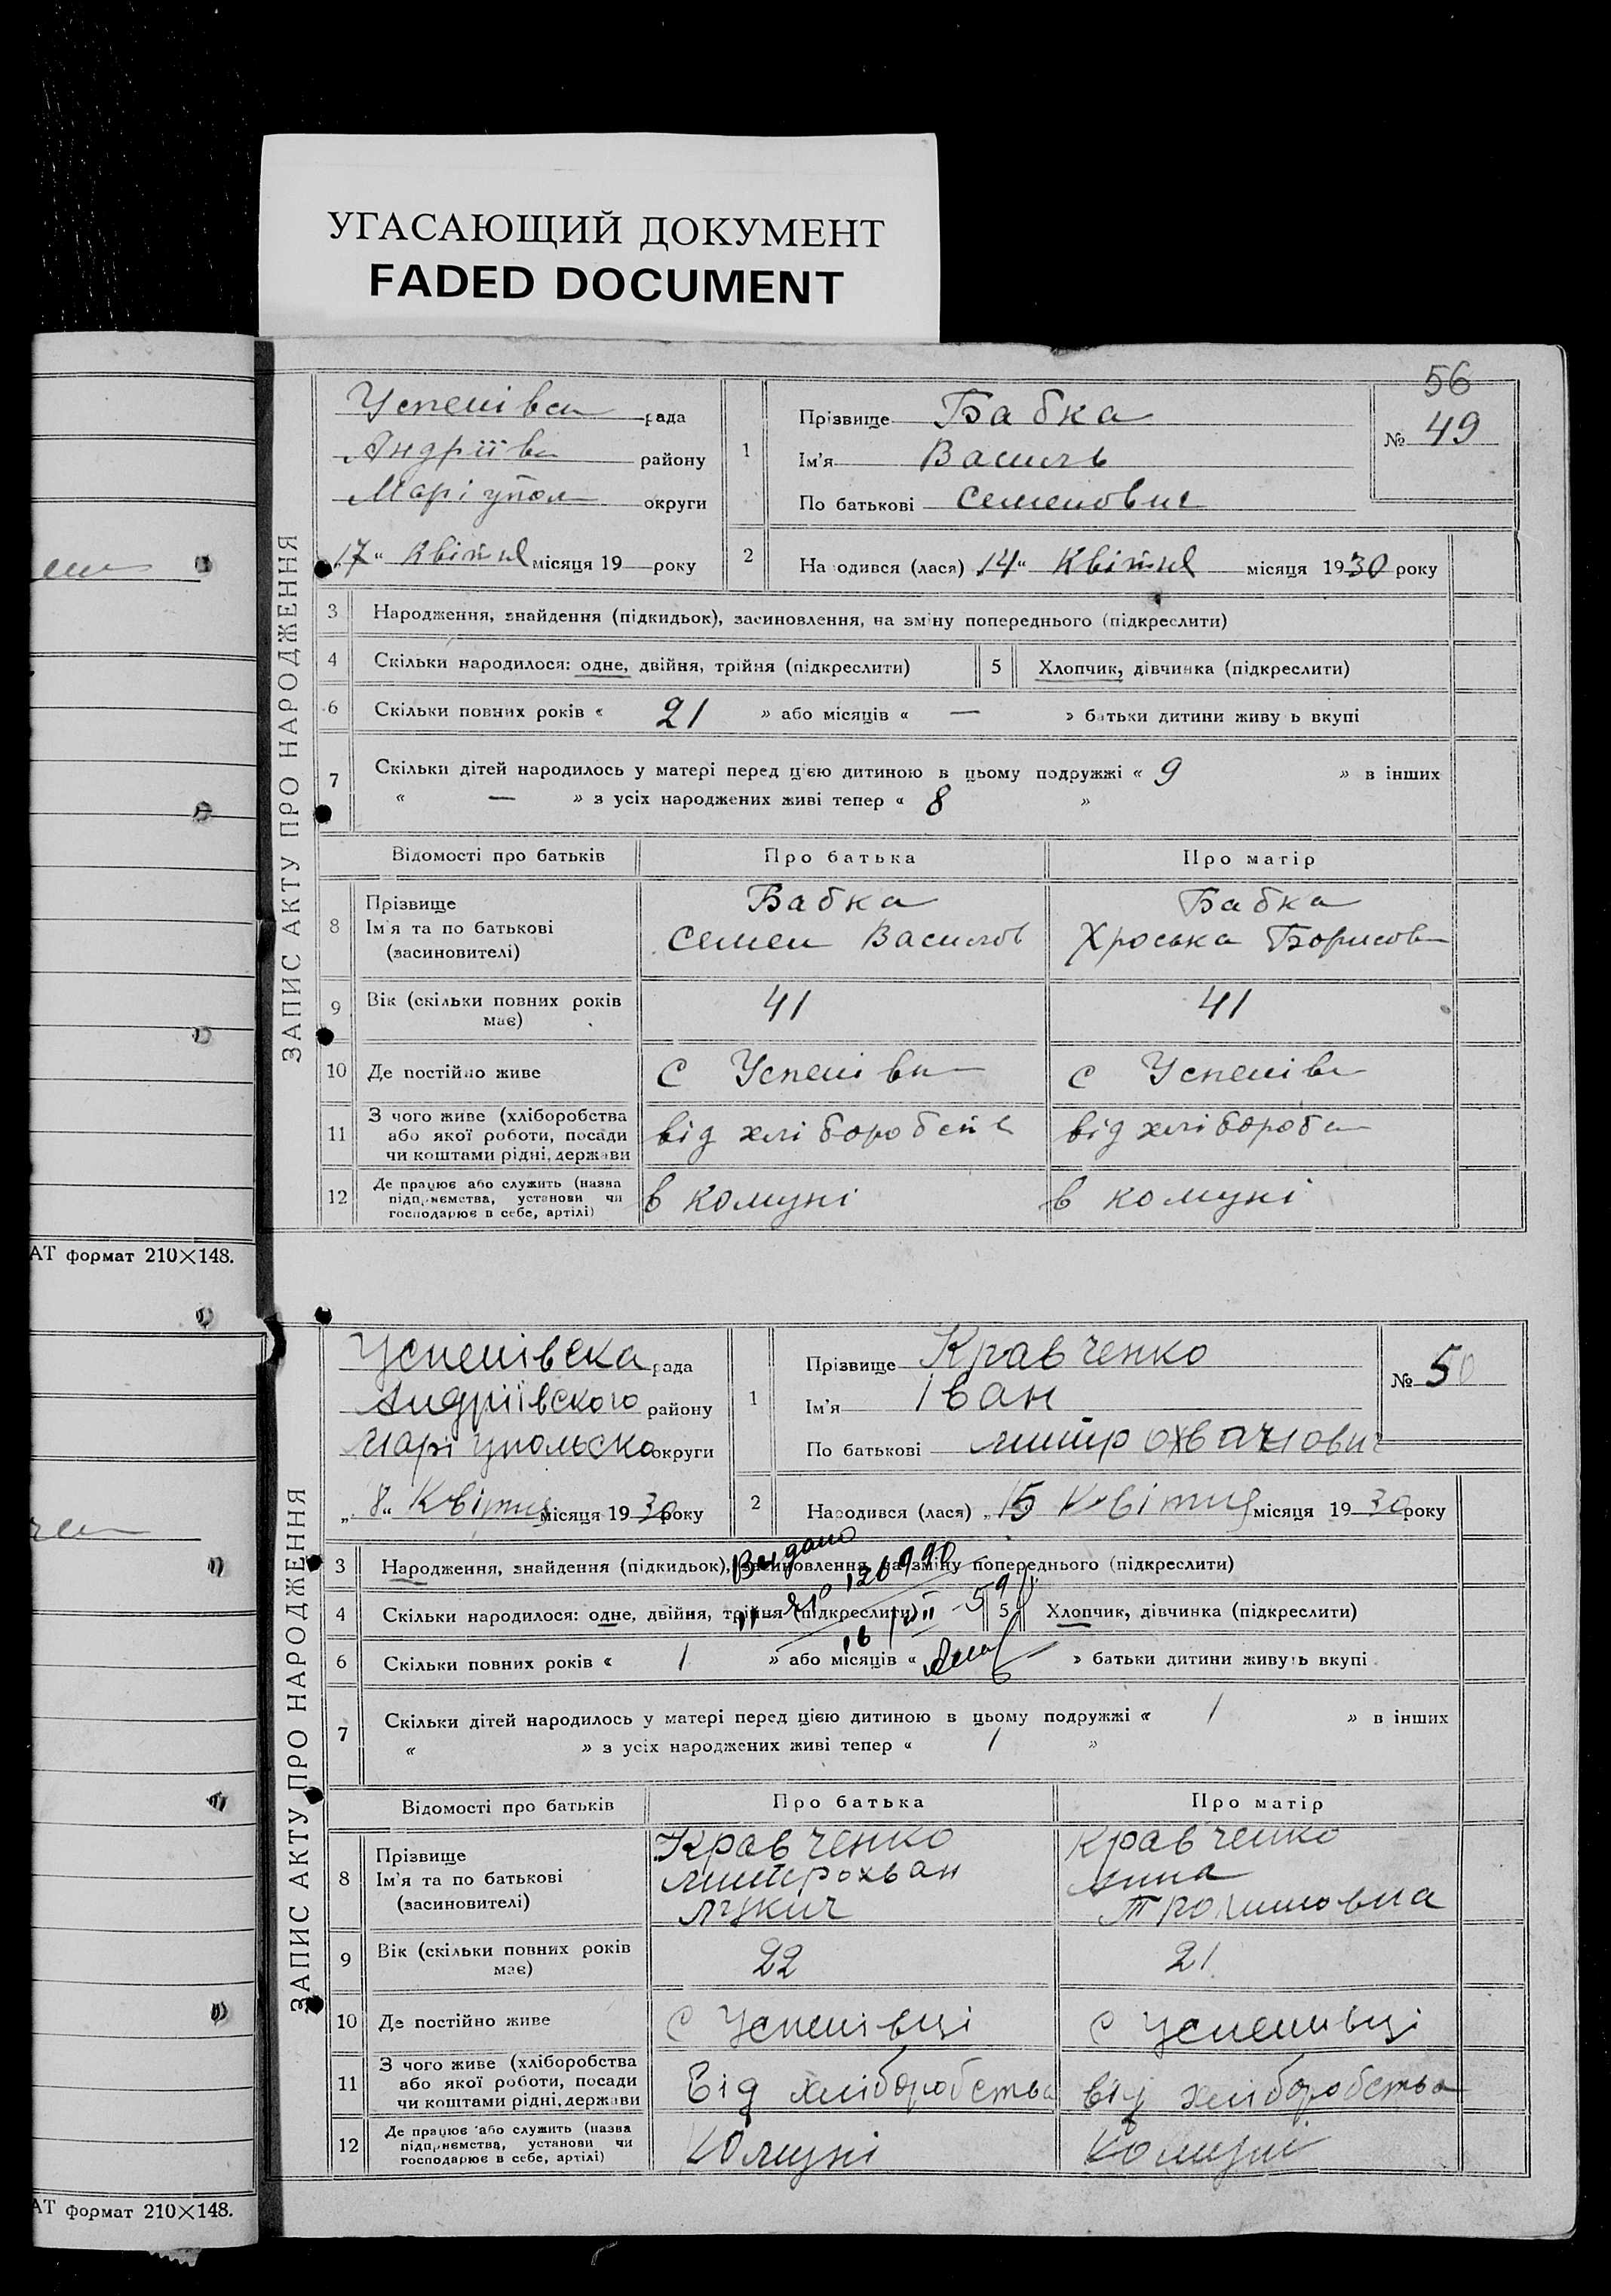 УГАСАЮЩИЙ ДОКУМЕНТ
FADED DOCUMENT
56
ЗАПИС АКТУ ПРО НАРОДЖЕННЯ
Успенівск рада
Андріївк району
Маріупол округи
„17“ Квітня місяця 19 року
1 Прізвище Бабка
Ім'я Василь
По батькові Семенович
№ 49
2 На одився (лася) „14“ Квітня місяця 1930 року
3 Народження, знайдення (підкидьок), засиновлення, на зміну попереднього (підкреслити)
4 Скільки народилося: одне, двійня, трійня (підкреслити) 5 Хлопчик, дівчинка (підкреслити)
6 Скільки повних років « 21 » або місяців « — » батьки дитини живу ь вкупі
7 Скільки дітей народилось у матері перед цією дитиною в цьому подружжі « 9 » в інших
« — » з усіх народжених живі тепер « 8 »
Відомості про батьків Про батька Про матір
8 Прізвище Бабка Бабка
Ім'я та по батькові Семен Васильов Хроська Борисов
(засиновителі)
9 Вік (скільки повних років має) 41 41
10 Де постійно живе с Успенівк с Успенівк
11 З чого живе (хліборобства
або якої роботи, посади від хліборобств від хлібороб
чи коштами рідні, держави
12 Де працює або служить (назва
підприємства, установи чи в комуні в комуні
господарює в себе, артілі)
АТ формат 210×148.
ЗАПИС АКТУ ПРО НАРОДЖЕННЯ
Успенівска рада
Андріївского району
Маріупольско округи
„8“ Квітня місяця 1930 року
1 Прізвище Кравченко
Ім'я Іван
По батькові Митрохванович
№ 50
2 Народився (лася) „15 Квітня місяця 1930 року
3 Народження, знайдення (підкидьок), засиновлення, на зміну попереднього (підкреслити)
Выдано
4 Скільки народилося: одне, двійня, трійня (підкреслити) 5 Хлопчик, дівчинка (підкреслити)
6 Скільки повних років « 1 » або місяців « » батьки дитини живуть вкупі
7 Скільки дітей народилось у матері перед цією дитиною в цьому подружжі « 1 » в інших
« » з усіх народжених живі тепер « 1 »
Відомості про батьків Про батька Про матір
8 Прізвище Кравченко Кравченко
Ім'я та по батькові Митрохван Анна
(засиновителі) Лукич Трохимовна
9 Вік (скільки повних років має) 22 21
10 Де постійно живе С Успенівці С Успенивці
11 З чого живе (хліборобства
або якої роботи, посади Від хліборобства від хліборобства
чи коштами рідні, держави
12 Де працює або служить (назва
підприємства, установи чи Комуні Комуні
господарює в себе, артілі)
АТ формат 210×148.